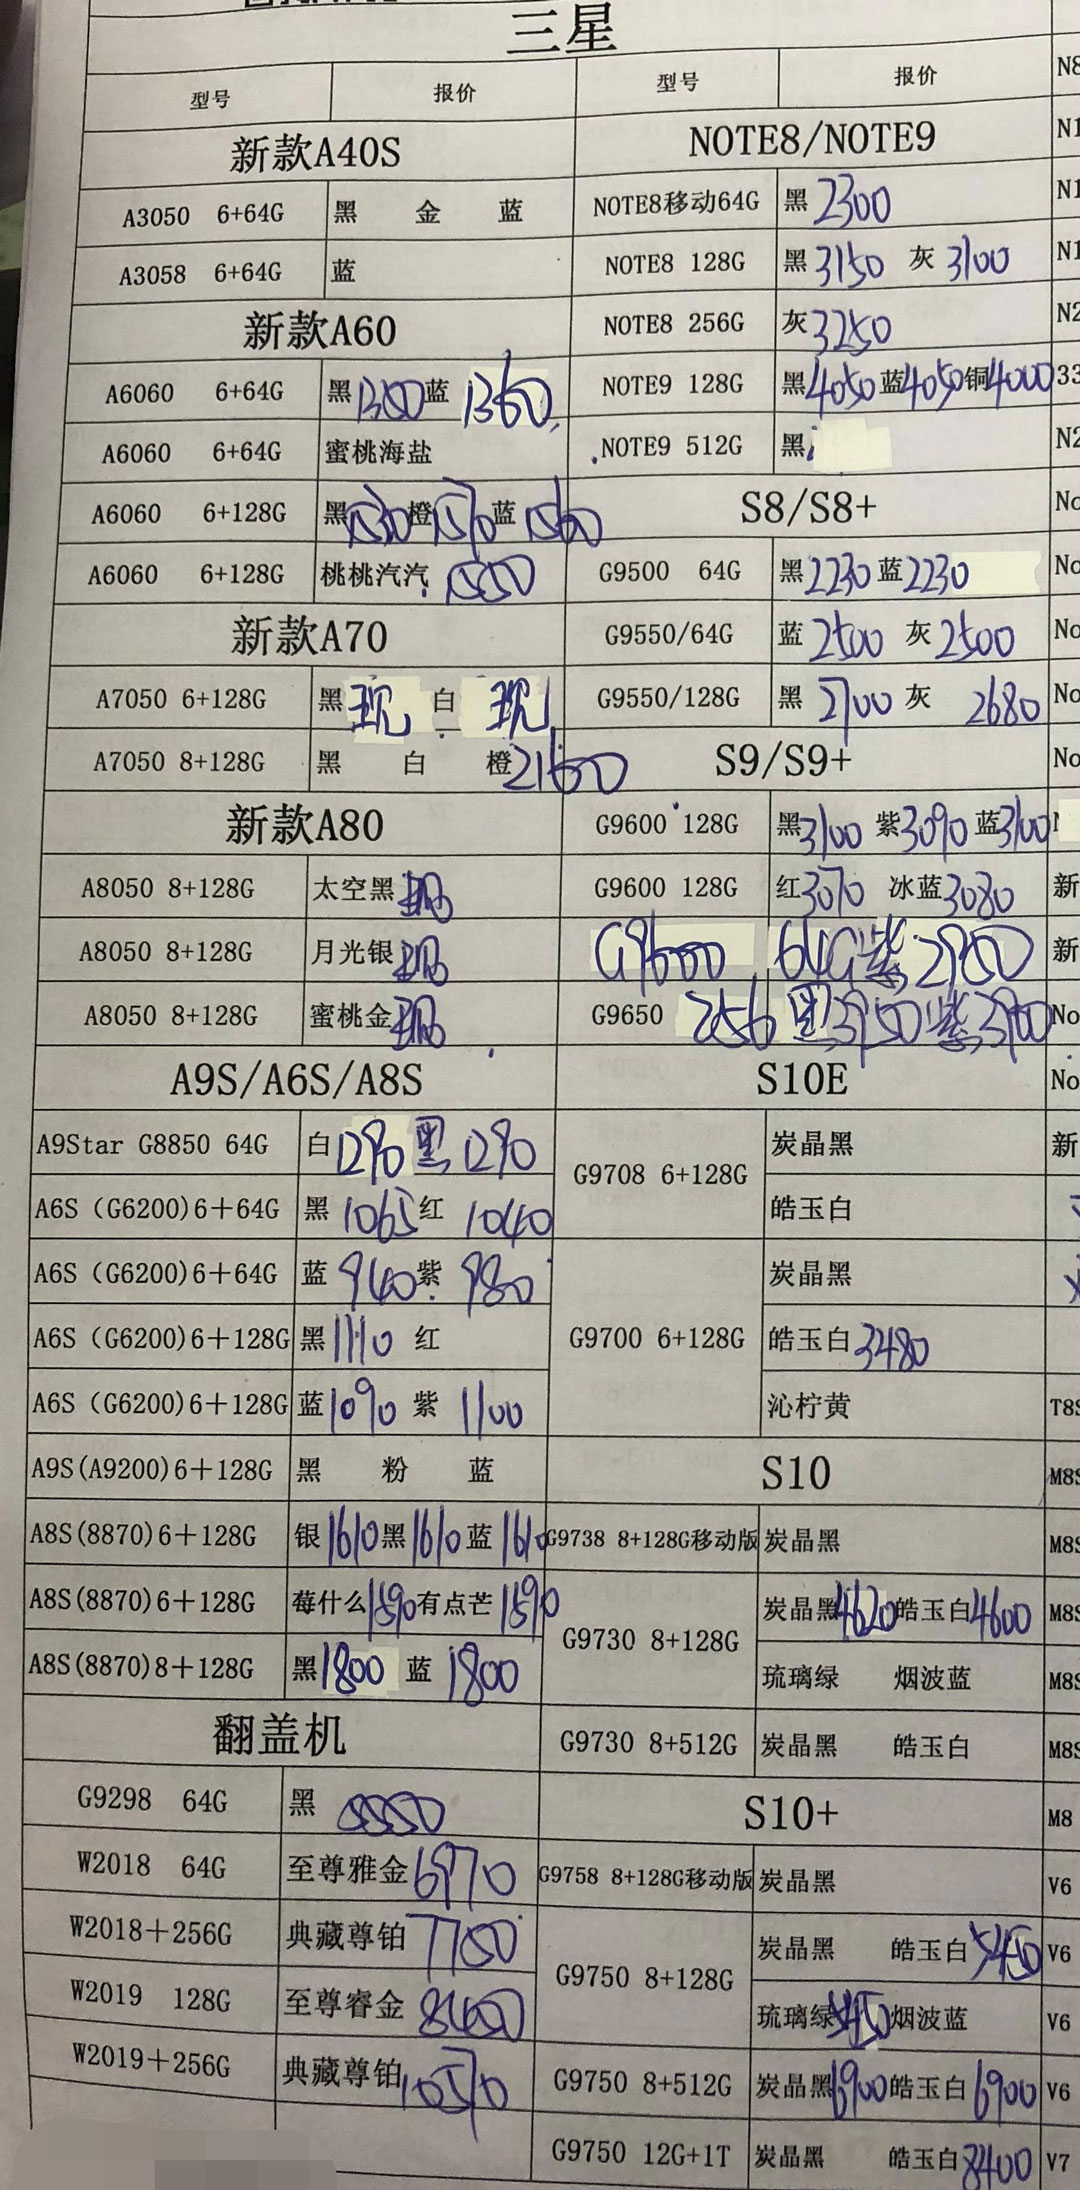 三星
型号 报价 型号 报价 N8
新款A40S NOTE8/NOTE9 N1
A3050 6+64G 黑 金 蓝 NOTE8移动64G 黑 2300 N1
A3058 6+64G 蓝 NOTE8 128G 黑 3150 灰 3100 N1
新款A60 NOTE8 256G 灰 3250 N2
A6060 6+64G 黑 蓝 1360 NOTE9 128G 黑 4050 蓝 4050 铜 4000 33
A6060 6+64G 蜜桃海盐 NOTE9 512G 黑 N2
A6060 6+128G 黑 1530 橙 1570 蓝 1560 S8/S8+ No
A6060 6+128G 桃桃汽汽 1550 G9500 64G 黑 2230 蓝 2230 No
新款A70 G9550/64G 蓝 2500 灰 2500 No
A7050 6+128G 黑 现 白 现 G9550/128G 黑 2700 灰 2680 No
A7050 8+128G 黑 白 橙 2160 S9/S9+ No
新款A80 G9600 128G 黑 3100 紫 3090 蓝 3100
A8050 8+128G 太空黑 现 G9600 128G 红 3070 冰蓝 3080 新
A8050 8+128G 月光银 现 G9600 64G 紫 2950 新
A8050 8+128G 蜜桃金 现 G9650 256 黑 3950 紫 3900 No
A9S/A6S/A8S S10E No
A9Star G8850 64G 白 1290 黑 1290 G9708 6+128G 炭晶黑 新
A6S（G6200)6＋64G 黑 1065 红 1040 皓玉白
A6S（G6200)6＋64G 蓝 940 紫 980 G9700 6+128G 炭晶黑
A6S（G6200)6＋128G 黑 1110 红 皓玉白 3480
A6S（G6200)6＋128G 蓝 1090 紫 1100 沁柠黄 T8S
A9S(A9200)6＋128G 黑 粉 蓝 S10 M8S
A8S(8870)6＋128G 银 1610 黑 1610 蓝 1610 G9738 8+128G移动版 炭晶黑 M8S
A8S(8870)6＋128G 莓什么 1590 有点芒 1590 G9730 8+128G 炭晶黑 4620 皓玉白 4600 M8S
A8S(8870)8＋128G 黑 1800 蓝 1800 琉璃绿 烟波蓝 M8S
翻盖机 G9730 8+512G 炭晶黑 皓玉白 M8S
G9298 64G 黑 S10+ M8
W2018 64G 至尊雅金 6970 G9758 8+128G移动版 炭晶黑 V6
W2018＋256G 典藏尊铂 7750 G9750 8+128G 炭晶黑 皓玉白 5450 V6
W2019 128G 至尊睿金 8450 琉璃绿 5450 烟波蓝 V6
W2019＋256G 典藏尊铂 10570 G9750 8+512G 炭晶黑 6900 皓玉白 6900 V6
G9750 12G+1T 炭晶黑 皓玉白 8400 V7